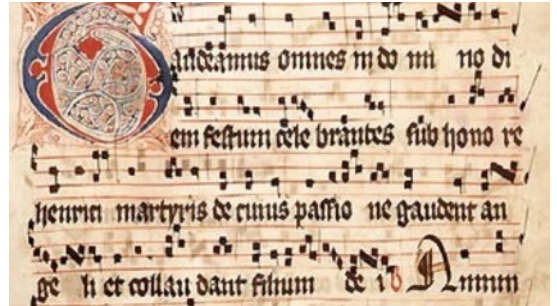 Gaudeamus omnes in do mi no di
em festum cele brantes sub hono re
henrici martyris de cuius passio ne gaudent an
ge li et collau dant filium de i V Annum